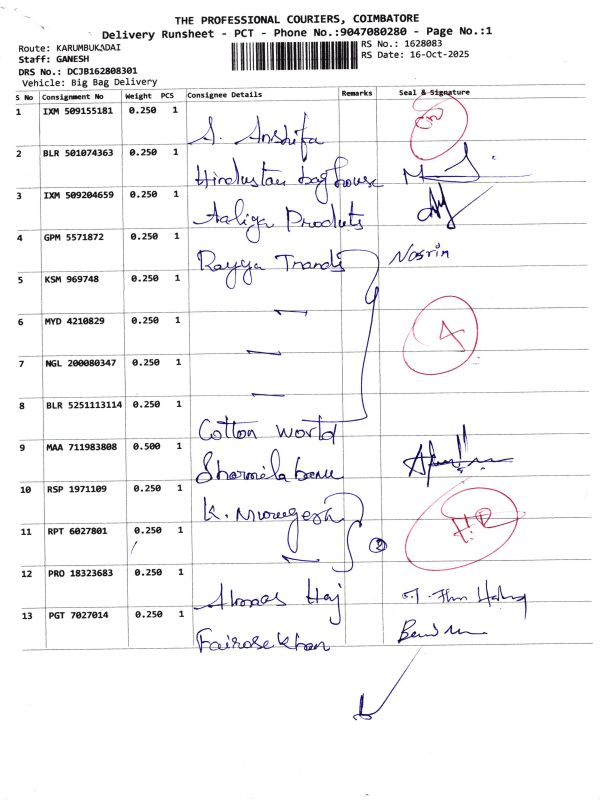 THE PROFESSIONAL COURIERS, COIMBATORE
Delivery Runsheet - PCT - Phone No.:9047080280 - Page No.:1
Route: KARUMBUKADAI RS No.: 1628083
Staff: GANESH RS Date: 16-Oct-2025
DRS No.: DCJB162808301
Vehicle: Big Bag Delivery
S No Consignment No Weight PCS Consignee Details Remarks Seal & Signature
1 IXM 509155181 0.250 1
A. Anshifa
2 BLR 501074363 0.250 1
Hindustan bag house
3 IXM 509204659 0.250 1
Aaliya Products
4 GPM 5571872 0.250 1
Rayya Trands Nosrin
5 KSM 969748 0.250 1
6 MYD 4210829 0.250 1
4
7 NGL 200080347 0.250 1
8 BLR 5251113114 0.250 1
Cotton World
9 MAA 711983808 0.500 1
Sharmila banu
10 RSP 1971109 0.250 1
K. Murugesh
11 RPT 6027801 0.250 1
2
12 PRO 18323683 0.250 1
13 PGT 7027014 0.250 1
Fairose khan